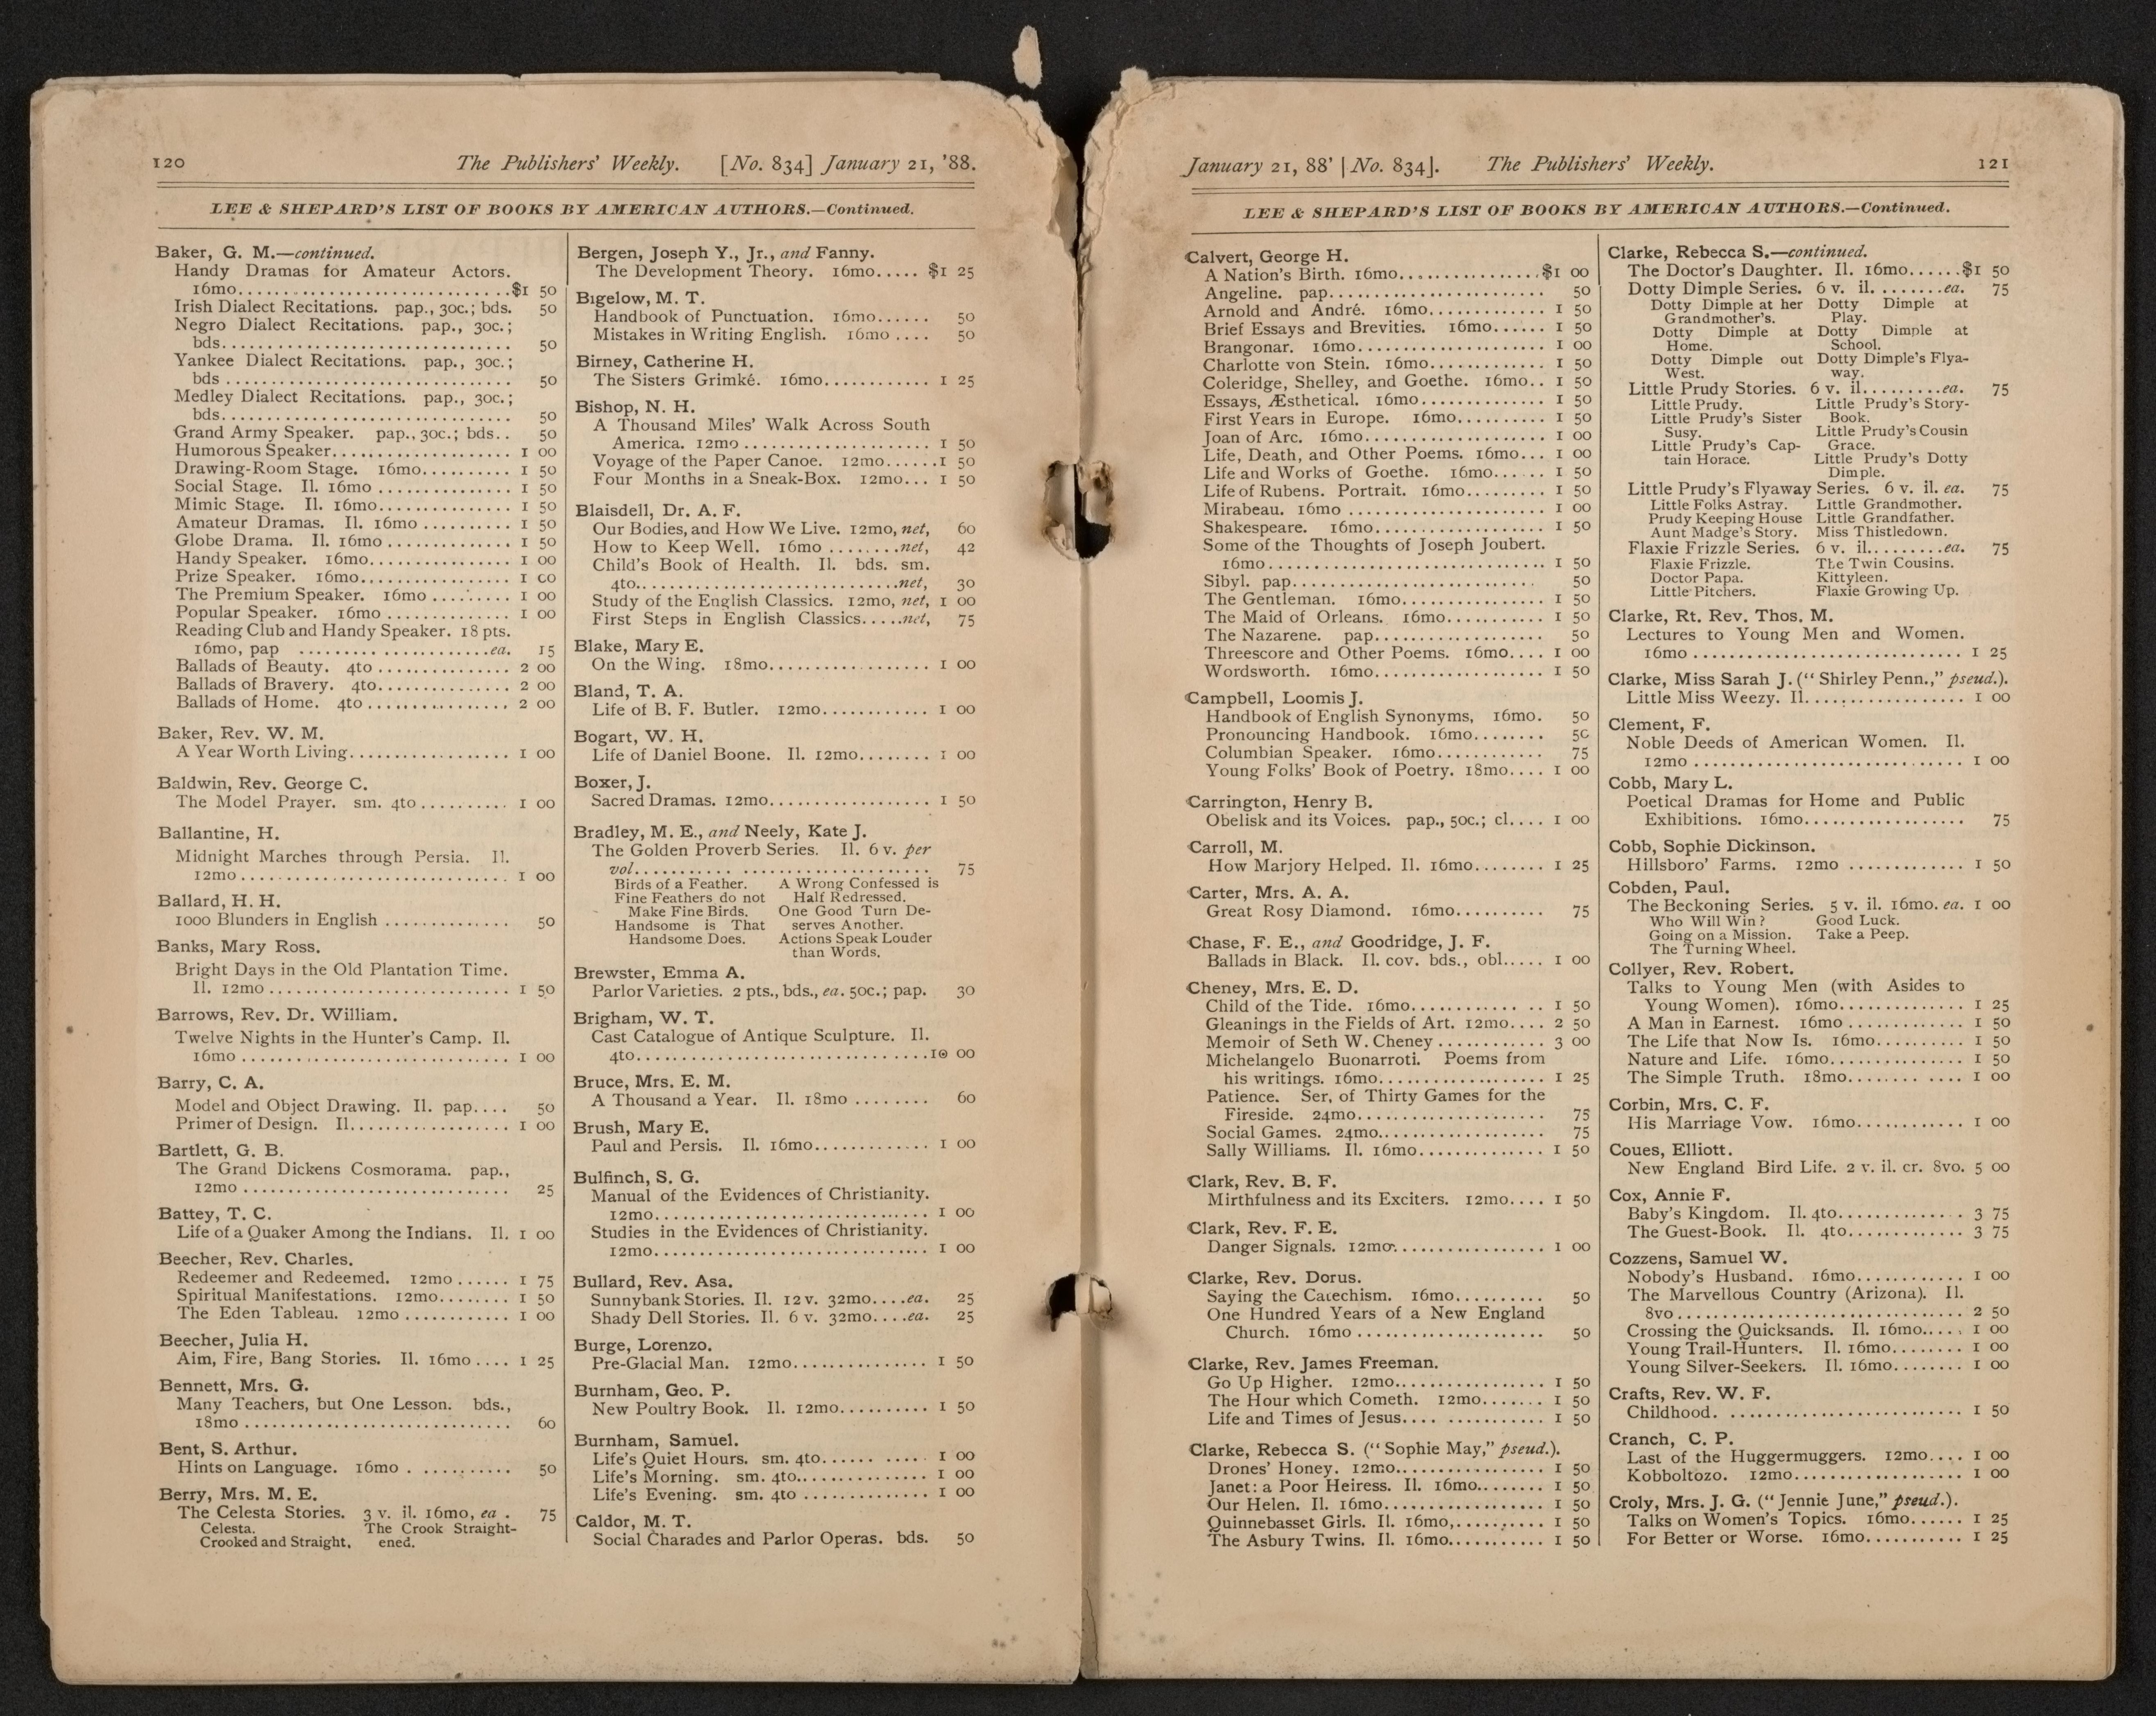 120 The Publishers' Weekly. [No. 834] January 21, '88.
LEE & SHEPARD'S LIST OF BOOKS BY AMERICAN AUTHORS.—Continued.
Baker, G. M.—continued.
Handy Dramas for Amateur Actors.
16mo..............................$1 50
Irish Dialect Recitations. pap., 30c.; bds. 50
Negro Dialect Recitations. pap., 30c.;
bds................................ 50
Yankee Dialect Recitations. pap., 30c.;
bds ................................ 50
Medley Dialect Recitations. pap., 30c.;
bds................................ 50
Grand Army Speaker. pap., 30c.; bds.. 50
Humorous Speaker....................... 1 00
Drawing-Room Stage. 16mo.......... 1 50
Social Stage. Il. 16mo ............... 1 50
Mimic Stage. Il. 16mo............... 1 50
Amateur Dramas. Il. 16mo .......... 1 50
Globe Drama. Il. 16mo .............. 1 50
Handy Speaker. 16mo................ 1 00
Prize Speaker. 16mo................. 1 00
The Premium Speaker. 16mo ......... 1 00
Popular Speaker. 16mo .............. 1 00
Reading Club and Handy Speaker. 18 pts.
16mo, pap .....................ea. 15
Ballads of Beauty. 4to ............... 2 00
Ballads of Bravery. 4to............... 2 00
Ballads of Home. 4to ................ 2 00
Baker, Rev. W. M.
A Year Worth Living.................. 1 00
Baldwin, Rev. George C.
The Model Prayer. sm. 4to .......... 1 00
Ballantine, H.
Midnight Marches through Persia. Il.
12mo .............................. 1 00
Ballard, H. H.
1000 Blunders in English .............. 50
Banks, Mary Ross.
Bright Days in the Old Plantation Time.
Il. 12mo ........................... 1 50
Barrows, Rev. Dr. William.
Twelve Nights in the Hunter's Camp. Il.
16mo .............................. 1 00
Barry, C. A.
Model and Object Drawing. Il. pap.... 50
Primer of Design. Il................... 1 00
Bartlett, G. B.
The Grand Dickens Cosmorama. pap.,
12mo .............................. 25
Battey, T. C.
Life of a Quaker Among the Indians. Il. 1 00
Beecher, Rev. Charles.
Redeemer and Redeemed. 12mo ...... 1 75
Spiritual Manifestations. 12mo........ 1 50
The Eden Tableau. 12mo ............ 1 00
Beecher, Julia H.
Aim, Fire, Bang Stories. Il. 16mo .... 1 25
Bennett, Mrs. G.
Many Teachers, but One Lesson. bds.,
18mo .............................. 60
Bent, S. Arthur.
Hints on Language. 16mo . .......... 50
Berry, Mrs. M. E.
The Celesta Stories. 3 v. il. 16mo, ea . 75
Celesta. The Crook Straight-
Crooked and Straight. ened.
Bergen, Joseph Y., Jr., and Fanny.
The Development Theory. 16mo..... $1 25
Bigelow, M. T.
Handbook of Punctuation. 16mo...... 50
Mistakes in Writing English. 16mo .... 50
Birney, Catherine H.
The Sisters Grimké. 16mo............ 1 25
Bishop, N. H.
A Thousand Miles' Walk Across South
America. 12mo ..................... 1 50
Voyage of the Paper Canoe. 12mo......1 50
Four Months in a Sneak-Box. 12mo... 1 50
Blaisdell, Dr. A. F.
Our Bodies, and How We Live. 12mo, net, 60
How to Keep Well. 16mo ........net, 42
Child's Book of Health. Il. bds. sm.
4to.............................net, 30
Study of the English Classics. 12mo, net, 1 00
First Steps in English Classics.....net, 75
Blake, Mary E.
On the Wing. 18mo.................. 1 00
Bland, T. A.
Life of B. F. Butler. 12mo............ 1 00
Bogart, W. H.
Life of Daniel Boone. Il. 12mo........ 1 00
Boxer, J.
Sacred Dramas. 12mo.................. 1 50
Bradley, M. E., and Neely, Kate J.
The Golden Proverb Series. Il. 6 v. per
vol................................ 75
Birds of a Feather. A Wrong Confessed is
Fine Feathers do not Half Redressed.
Make Fine Birds. One Good Turn De-
Handsome is That serves Another.
Handsome Does. Actions Speak Louder
than Words.
Brewster, Emma A.
Parlor Varieties. 2 pts., bds., ea. 50c.; pap. 30
Brigham, W. T.
Cast Catalogue of Antique Sculpture. Il.
4to................................10 00
Bruce, Mrs. E. M.
A Thousand a Year. Il. 18mo ........ 60
Brush, Mary E.
Paul and Persis. Il. 16mo............. 1 00
Bulfinch, S. G.
Manual of the Evidences of Christianity.
12mo............................... 1 00
Studies in the Evidences of Christianity.
12mo............................... 1 00
Bullard, Rev. Asa.
Sunnybank Stories. Il. 12 v. 32mo....ea. 25
Shady Dell Stories. Il. 6 v. 32mo....ea. 25
Burge, Lorenzo.
Pre-Glacial Man. 12mo............... 1 50
Burnham, Geo. P.
New Poultry Book. Il. 12mo.......... 1 50
Burnham, Samuel.
Life's Quiet Hours. sm. 4to...... ..... 1 00
Life's Morning. sm. 4to............... 1 00
Life's Evening. sm. 4to .............. 1 00
Caldor, M. T.
Social Charades and Parlor Operas. bds. 50
January 21, 88' | No. 834]. The Publishers' Weekly. 121
LEE & SHEPARD'S LIST OF BOOKS BY AMERICAN AUTHORS.—Continued.
Calvert, George H.
A Nation's Birth. 16mo................$1 00
Angeline. pap........................ 50
Arnold and André. 16mo............. 1 50
Brief Essays and Brevities. 16mo...... 1 50
Brangonar. 16mo..................... 1 00
Charlotte von Stein. 16mo............. 1 50
Coleridge, Shelley, and Goethe. 16mo.. 1 50
Essays, Æsthetical. 16mo.............. 1 50
First Years in Europe. 16mo.......... 1 50
Joan of Arc. 16mo.................... 1 00
Life, Death, and Other Poems. 16mo... 1 00
Life and Works of Goethe. 16mo...... 1 50
Life of Rubens. Portrait. 16mo......... 1 50
Mirabeau. 16mo ...................... 1 00
Shakespeare. 16mo................... 1 50
Some of the Thoughts of Joseph Joubert.
16mo............................... 1 50
Sibyl. pap........................... 50
The Gentleman. 16mo................ 1 50
The Maid of Orleans. 16mo........... 1 50
The Nazarene. pap................... 50
Threescore and Other Poems. 16mo.... 1 00
Wordsworth. 16mo................... 1 50
Campbell, Loomis J.
Handbook of English Synonyms, 16mo. 50
Pronouncing Handbook. 16mo........ 50
Columbian Speaker. 16mo............ 75
Young Folks' Book of Poetry. 18mo.... 1 00
Carrington, Henry B.
Obelisk and its Voices. pap., 50c.; cl.... 1 00
Carroll, M.
How Marjory Helped. Il. 16mo........ 1 25
Carter, Mrs. A. A.
Great Rosy Diamond. 16mo.......... 75
Chase, F. E., and Goodridge, J. F.
Ballads in Black. Il. cov. bds., obl..... 1 00
Cheney, Mrs. E. D.
Child of the Tide. 16mo............... 1 50
Gleanings in the Fields of Art. 12mo.... 2 50
Memoir of Seth W. Cheney ............ 3 00
Michelangelo Buonarroti. Poems from
his writings. 16mo.................. 1 25
Patience. Ser. of Thirty Games for the
Fireside. 24mo..................... 75
Social Games. 24mo.................. 75
Sally Williams. Il. 16mo.............. 1 50
Clark, Rev. B. F.
Mirthfulness and its Exciters. 12mo.... 1 50
Clark, Rev. F. E.
Danger Signals. 12mo................. 1 00
Clarke, Rev. Dorus.
Saying the Catechism. 16mo.......... 50
One Hundred Years of a New England
Church. 16mo ..................... 50
Clarke, Rev. James Freeman.
Go Up Higher. 12mo................. 1 50
The Hour which Cometh. 12mo....... 1 50
Life and Times of Jesus.... ........... 1 50
Clarke, Rebecca S. ("Sophie May," pseud.).
Drones' Honey. 12mo................. 1 50
Janet: a Poor Heiress. Il. 16mo........ 1 50
Our Helen. Il. 16mo.................. 1 50
Quinnebasset Girls. Il. 16mo,.......... 1 50
The Asbury Twins. Il. 16mo........... 1 50
Clarke, Rebecca S.—continued.
The Doctor's Daughter. Il. 16mo......$1 50
Dotty Dimple Series. 6 v. il. ........ea. 75
Dotty Dimple at her Dotty Dimple at
Grandmother's. Play.
Dotty Dimple at Dotty Dimple at
Home. School.
Dotty Dimple out Dotty Dimple's Flya-
West. way.
Little Prudy Stories. 6 v. il.........ea. 75
Little Prudy. Little Prudy's Story-
Little Prudy's Sister Book.
Susy. Little Prudy's Cousin
Little Prudy's Cap- Grace.
tain Horace. Little Prudy's Dotty
Dimple.
Little Prudy's Flyaway Series. 6 v. il. ea. 75
Little Folks Astray. Little Grandmother.
Prudy Keeping House Little Grandfather.
Aunt Madge's Story. Miss Thistledown.
Flaxie Frizzle Series. 6 v. il.........ea. 75
Flaxie Frizzle. The Twin Cousins.
Doctor Papa. Kittyleen.
Little Pitchers. Flaxie Growing Up.
Clarke, Rt. Rev. Thos. M.
Lectures to Young Men and Women.
16mo .............................. 1 25
Clarke, Miss Sarah J. ("Shirley Penn.," pseud.).
Little Miss Weezy. Il.................. 1 00
Clement, F.
Noble Deeds of American Women. Il.
12mo .............................. 1 00
Cobb, Mary L.
Poetical Dramas for Home and Public
Exhibitions. 16mo.................. 75
Cobb, Sophie Dickinson.
Hillsboro' Farms. 12mo ............. 1 50
Cobden, Paul.
The Beckoning Series. 5 v. il. 16mo. ea. 1 00
Who Will Win? Good Luck.
Going on a Mission. Take a Peep.
The Turning Wheel.
Collyer, Rev. Robert.
Talks to Young Men (with Asides to
Young Women). 16mo.............. 1 25
A Man in Earnest. 16mo ............. 1 50
The Life that Now Is. 16mo.......... 1 50
Nature and Life. 16mo............... 1 50
The Simple Truth. 18mo....... ..... 1 00
Corbin, Mrs. C. F.
His Marriage Vow. 16mo............ 1 00
Coues, Elliott.
New England Bird Life. 2 v. il. cr. 8vo. 5 00
Cox, Annie F.
Baby's Kingdom. Il. 4to.............. 3 75
The Guest-Book. Il. 4to............. 3 75
Cozzens, Samuel W.
Nobody's Husband. 16mo............ 1 00
The Marvellous Country (Arizona). Il.
8vo................................ 2 50
Crossing the Quicksands. Il. 16mo..... 1 00
Young Trail-Hunters. Il. 16mo........ 1 00
Young Silver-Seekers. Il. 16mo........ 1 00
Crafts, Rev. W. F.
Childhood. .......................... 1 50
Cranch, C. P.
Last of the Huggermuggers. 12mo.... 1 00
Kobboltozo. 12mo................... 1 00
Croly, Mrs. J. G. ("Jennie June," pseud.).
Talks on Women's Topics. 16mo...... 1 25
For Better or Worse. 16mo........... 1 25